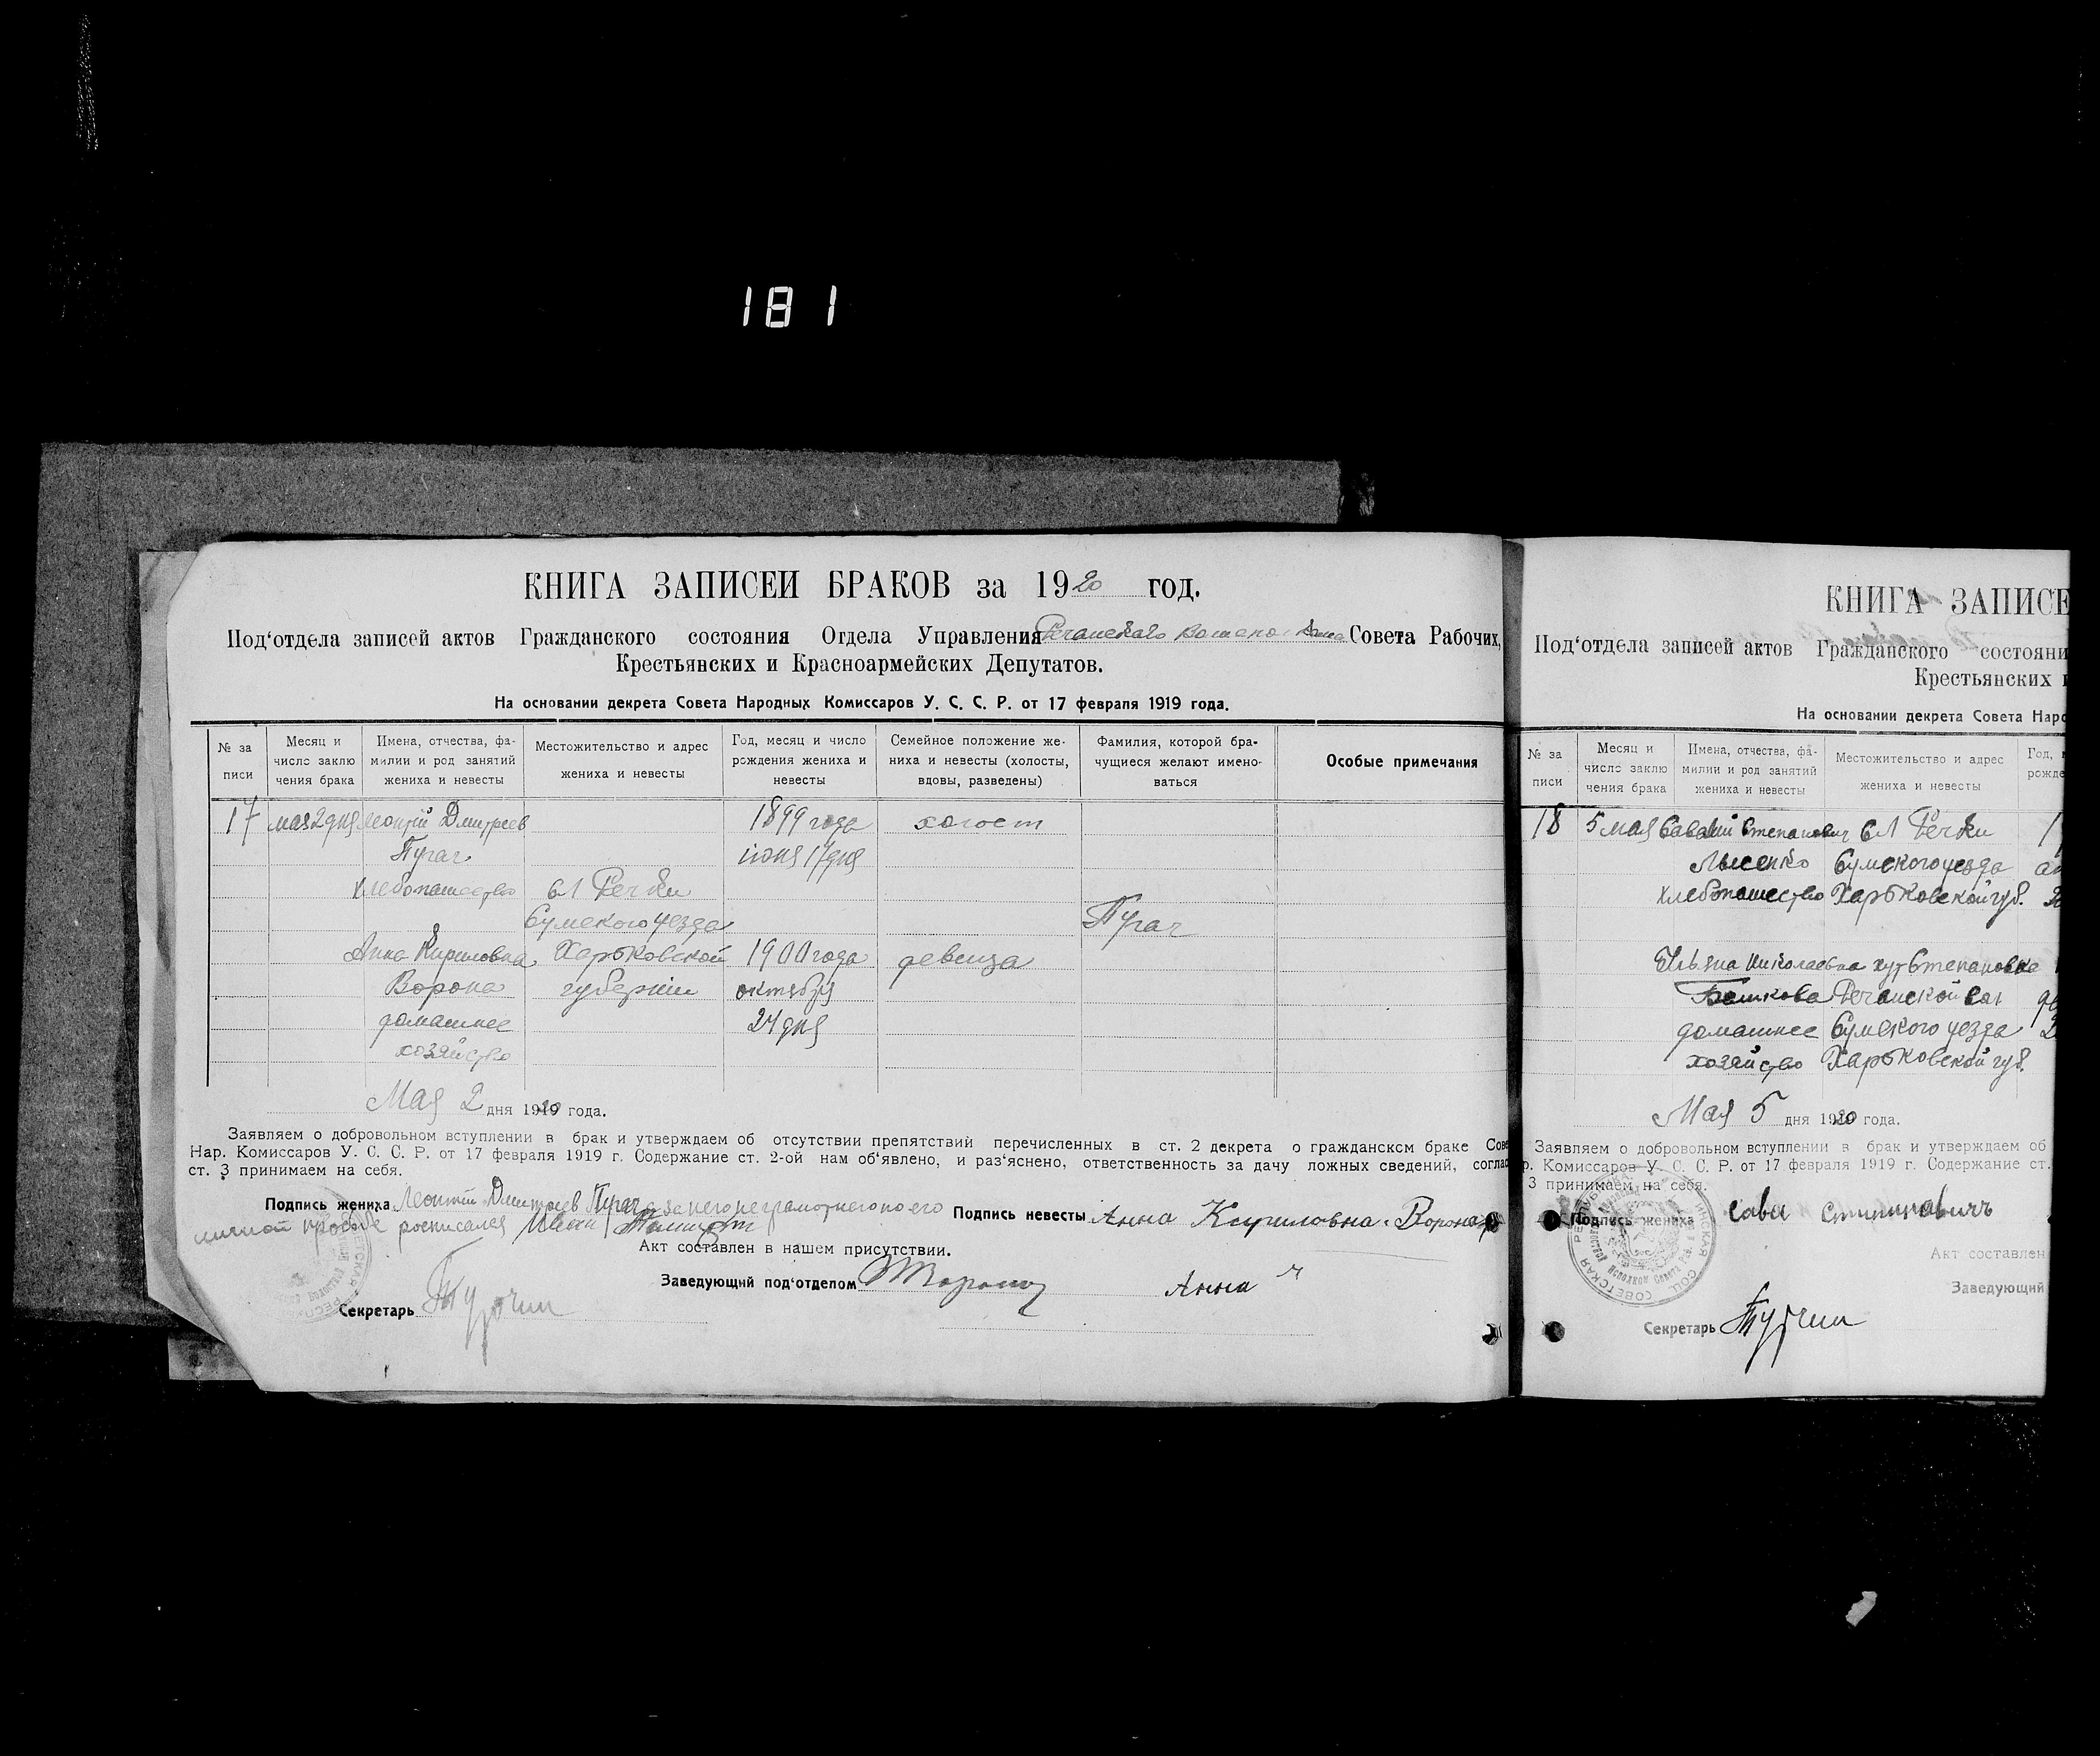 181
КНИГА ЗАПИСЕЙ БРАКОВ за 1920 год.
Под‘отдела записей актов Гражданского состояния Отдела Управления Речанского Совета Рабочих,
Крестьянских и Красноармейских Депутатов.
На основании декрета Совета Народных Комиссаров У. С. С. Р. от 17 февраля 1919 года.
№ за писи
Месяц и число заклю чения брака
Имена, отчества, фа- милии и род занятий жениха и невесты
Местожительство и адрес жениха и невесты
Год, месяц и число рождения жениха и невесты
Семейное положение же- ниха и невесты (холосты, вдовы, разведены)
Фамилия, которой бра- чущиеся желают имено- ваться
Особые примечания
17 мая 2 дня Леонтій Дмитриев 1899 года холост
Пугач іюня 17 дня
хлебопашество сл Речки
Сумского уезда Пугач
Анна Кириловна Харьковской 1900 года девица
Ворона губерніи октября
домашнее 24 дня
хозяйство
Мая 2 дня 1920 года.
Заявляем о добровольном вступлении в брак и утверждаем об отсутствии препятствий перечисленных в ст. 2 декрета о гражданском браке Сове
Нар. Комиссаров У. С. С. Р. от 17 февраля 1919 г. Содержание ст. 2-ой нам об‘явлено, и раз‘яснено, ответственность за дачу ложных сведений, соглас
ст. 3 принимаем на себя.
Подпись жениха Леонтій Дмитриев Пугач а за него неграмотного по его Подпись невесты Анна Кириловна Ворона
личной просьбе росписался Иван
Акт составлен в нашем присутствии.
Заведующий под‘отделом Анна
Секретарь
КНИГА ЗАПИСЕ
Под‘отдела записей актов Гражданского состояни
Крестьянских и
На основании декрета Совета Наро
№ за писи
Месяц и число заклю чения брака
Имена, отчества, фа- милии и род занятий жениха и невесты
Местожительство и адрес жениха и невесты
Год, рожде
18 5 мая Савелий Степанович сл Речки
Лысенко Сумского уезда
хлебопашество Харьковской губ.
Ульяна Николаевна хут Степановка
Бошкова Речанской вол
домашнее Сумского уезда
хозяйство Харьковской губ.
Мая 5 дня 1920 года.
Заявляем о добровольном вступлении в брак и утверждаем об
р. Комиссаров У. С. С. Р. от 17 февраля 1919 г. Содержание ст.
3 принимаем на себя.
Подпись жениха Сава
Акт составлен
Заведующий
Секретарь